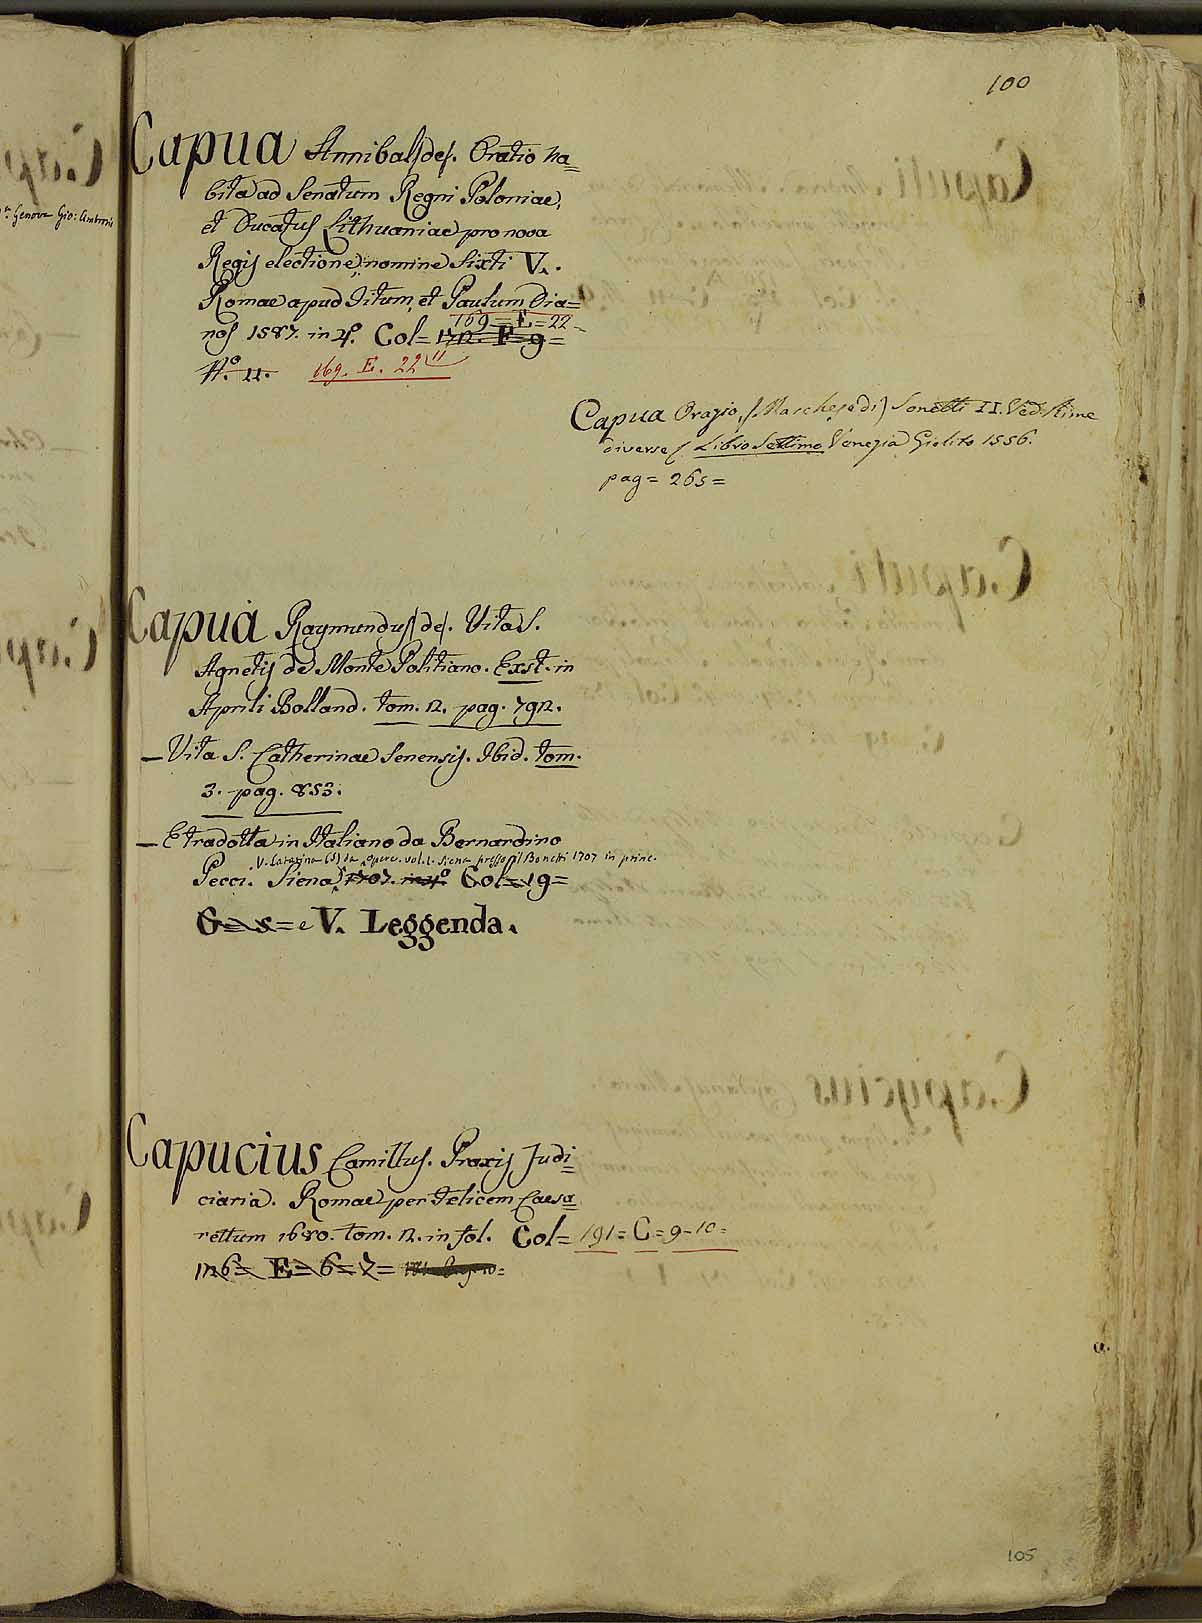 100
Capua Annibal (de). Oratio ha=
bita ad Senatum Regni Poloniae,
et Ducatus Lithuaniae pro nova
Regis electione, nomine Sixti V.
Romae apud Titum, et Paulum Dia=
169=E=22
nos 1587. in 4º. Col= 172. F=9=
Nº. 11. 169. E. 22 11
Capua Orazio, (Marchese di) Sonetti II. Ved. Rime
diverse / Libro Settimo Venezia Giolito 1556.
pag= 265=
Capua Raymundus (de). Vita S.
Agnetis de Monte Politiano. Exst. in
Aprili Bolland. tom. 2. pag. 792.
— Vita S. Catherinae Senensis. Ibid. tom.
3. pag. 853.
— E tradotta in Italiano da Bernardino
V. Catarina (S) da opere. vol. 1. Siena presso il Bonetti 1707 in princ.
Pecci. Siena 1707. in 4º Col= 19=
G= 5= e V. Leggenda.
Capucius Camillus. Praxis Judi=
ciaria. Romae per Felicem Caesa
rettum 1680. tom. 2. in fol. Col= 191= C= 9-10=
126= E= 6= 7=
105
Genova Gio: Antonio